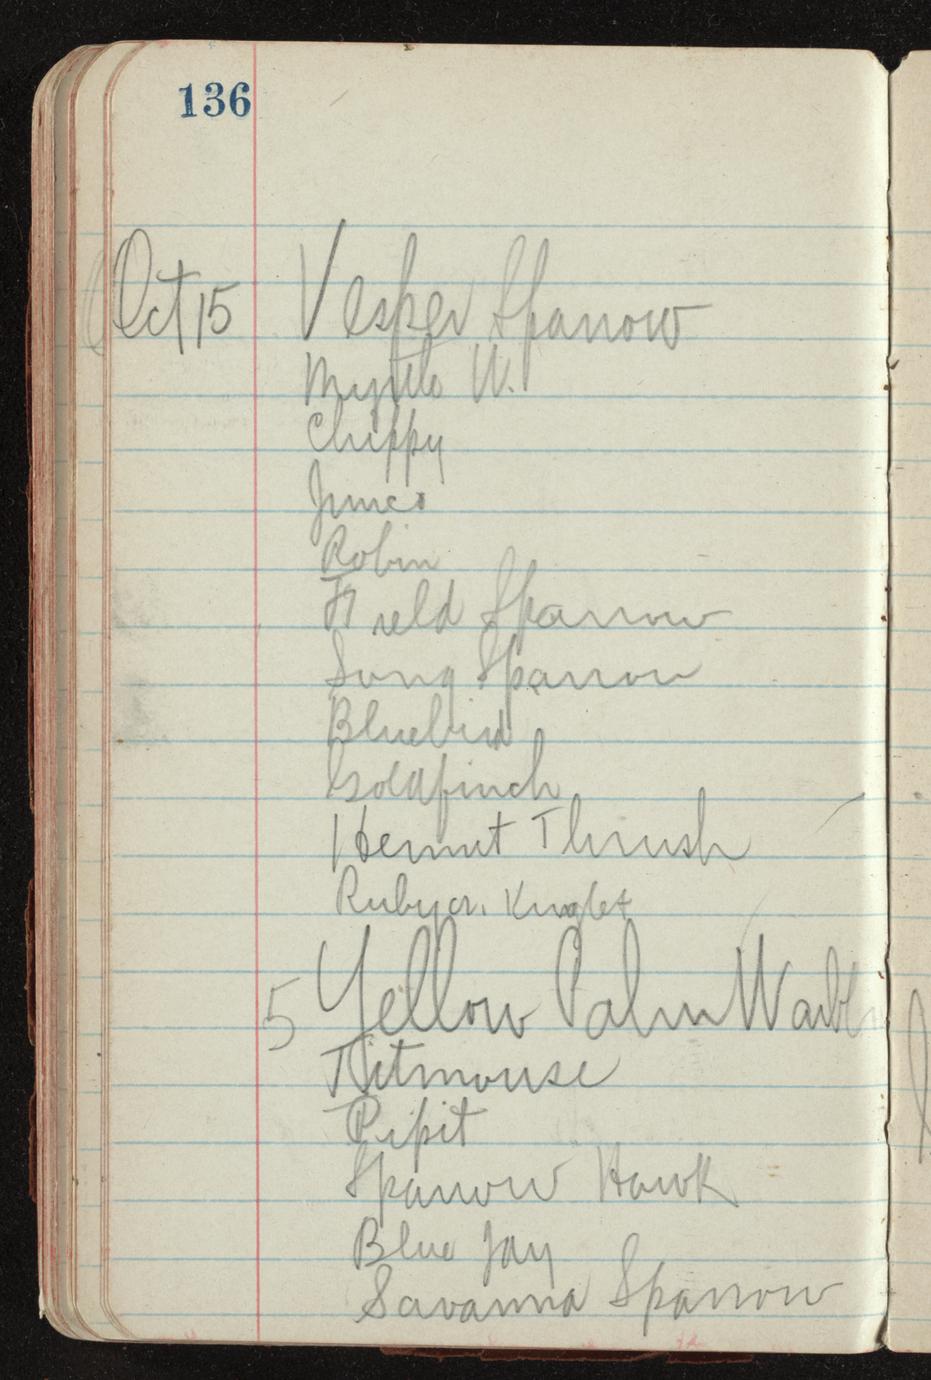 136
Oct 15 Vesper Sparrow
Myrtle W.
Chippy
Junco
Robin
Field Sparrow
Song Sparrow
Bluebird
Goldfinch
Hermit Thrush
Ruby cr. Kinglet
5 Yellow Palm Warbler
Titmouse
Pipit
Sparrow Hawk
Blue Jay
Savanna Sparrow